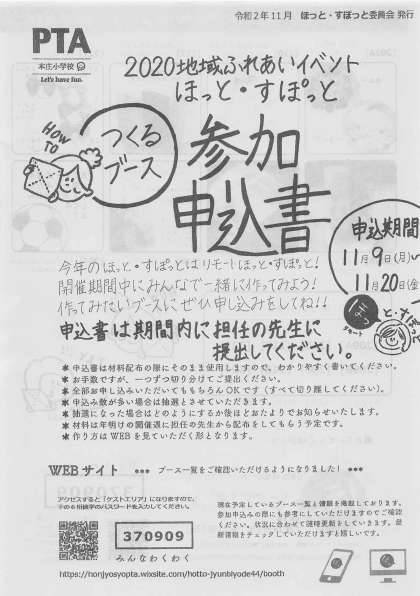 令和2年11月 ほっと・すぽっと委員会 発行
PTA
本庄小学校
Let's have fun.
2020地域ふれあいイベント
ほっと・すぽっと
HOW TO
つくる
ブース
参加
申込書
申込期間
11月9日(月)〜
11月20日(金
今年のほっと・すぽっとはリモートほっと・すぽっと!
開催期間中にみんなで一緒に作ってみよう!
作ってみたいブースにぜひ申し込みをしてね!!
申込書は期間内に担任の先生に
提出してください。
＊申込書は材料配布の際にそのまま使用しますので、わかりやすく書いてください。
＊お手数ですが、一つずつ切り分けてご提出ください。
＊全部お申し込みいただいてももちろんOKです(すべて切り離してください)。
＊申込み数が多い場合は抽選とさせていただきます。
＊抽選になった場合はどのようにするか後ほどおたよりでお知らせいたします。
＊材料は年明けの開催週に担任の先生から配布をしてもらう予定です。
＊作り方はWEBを見ていただく形となります。
WEBサイト ●●● ブース一覧をご確認いただけるようになりました! ●●●
アクセスすると「ゲストエリア」になりますので、
下の6桁数字のパスワードを入力してください。
370909
みんなわくわく
現在予定しているブース一覧と情報を掲載しております。
参加申込みの際にも参考にしていただけますのでご確認
ください。状況に合わせて随時更新をしていきます。最
新情報をチェックしていただけますと嬉しいです。
https://honjyosyopta.wixsite.com/hotto-jyunbiyode44/booth